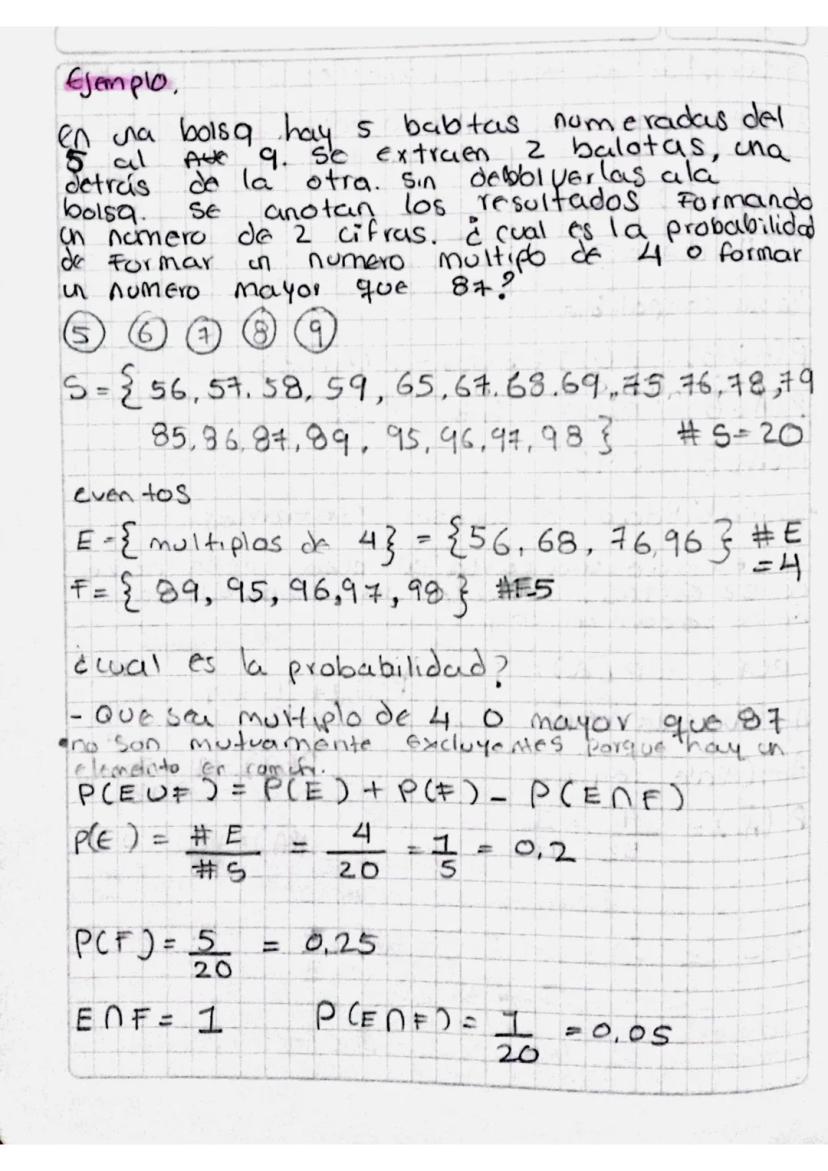 Ejemplo.
en una bolsa hay 5 balotas numeradas del
5 al 9. se extraen 2 balotas, una
detrás de la otra. sin debolverlas ala
bolsa. se anotan los resultados Formando
un numero de 2 cifras. ¿cual es la probabilidad
de Formar un numero multiplo de 4 o formar
un numero mayor que 87?
5 6 7 8 9
S = { 56, 57, 58, 59, 65, 67, 68, 69, 75, 76, 78, 79
85, 86, 87, 89, 95, 96, 97, 98 } # S = 20
eventos
E = { multiplos de 4 } = { 56, 68, 76, 96 } # E
= 4
F = { 89, 95, 96, 97, 98 } #F=5
¿cual es la probabilidad?
- Que sea multiplo de 4 o mayor que 87
• no son mutuamente excluyentes porque hay un
elemento en común.
P(E ∪ F) = P(E) + P(F) - P(E ∩ F)
P(E) = # E / # S = 4 / 20 = 1 / 5 = 0,2
P(F) = 5 / 20 = 0,25
E ∩ F = 1 P(E ∩ F) = 1 / 20 = 0,05